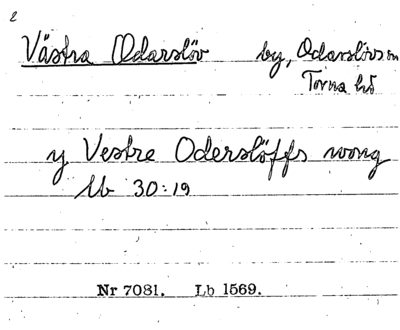 2
Västra Odarslöv by, Odarslövs sn
Torna hd
y Vestre Oderslöffs wong
Mb 30:19
Nr 7081. Lb 1569.